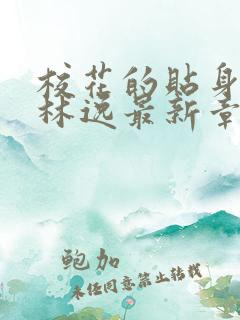 校花的贴身
林逸最新章
鲍加
未经同意禁止转载